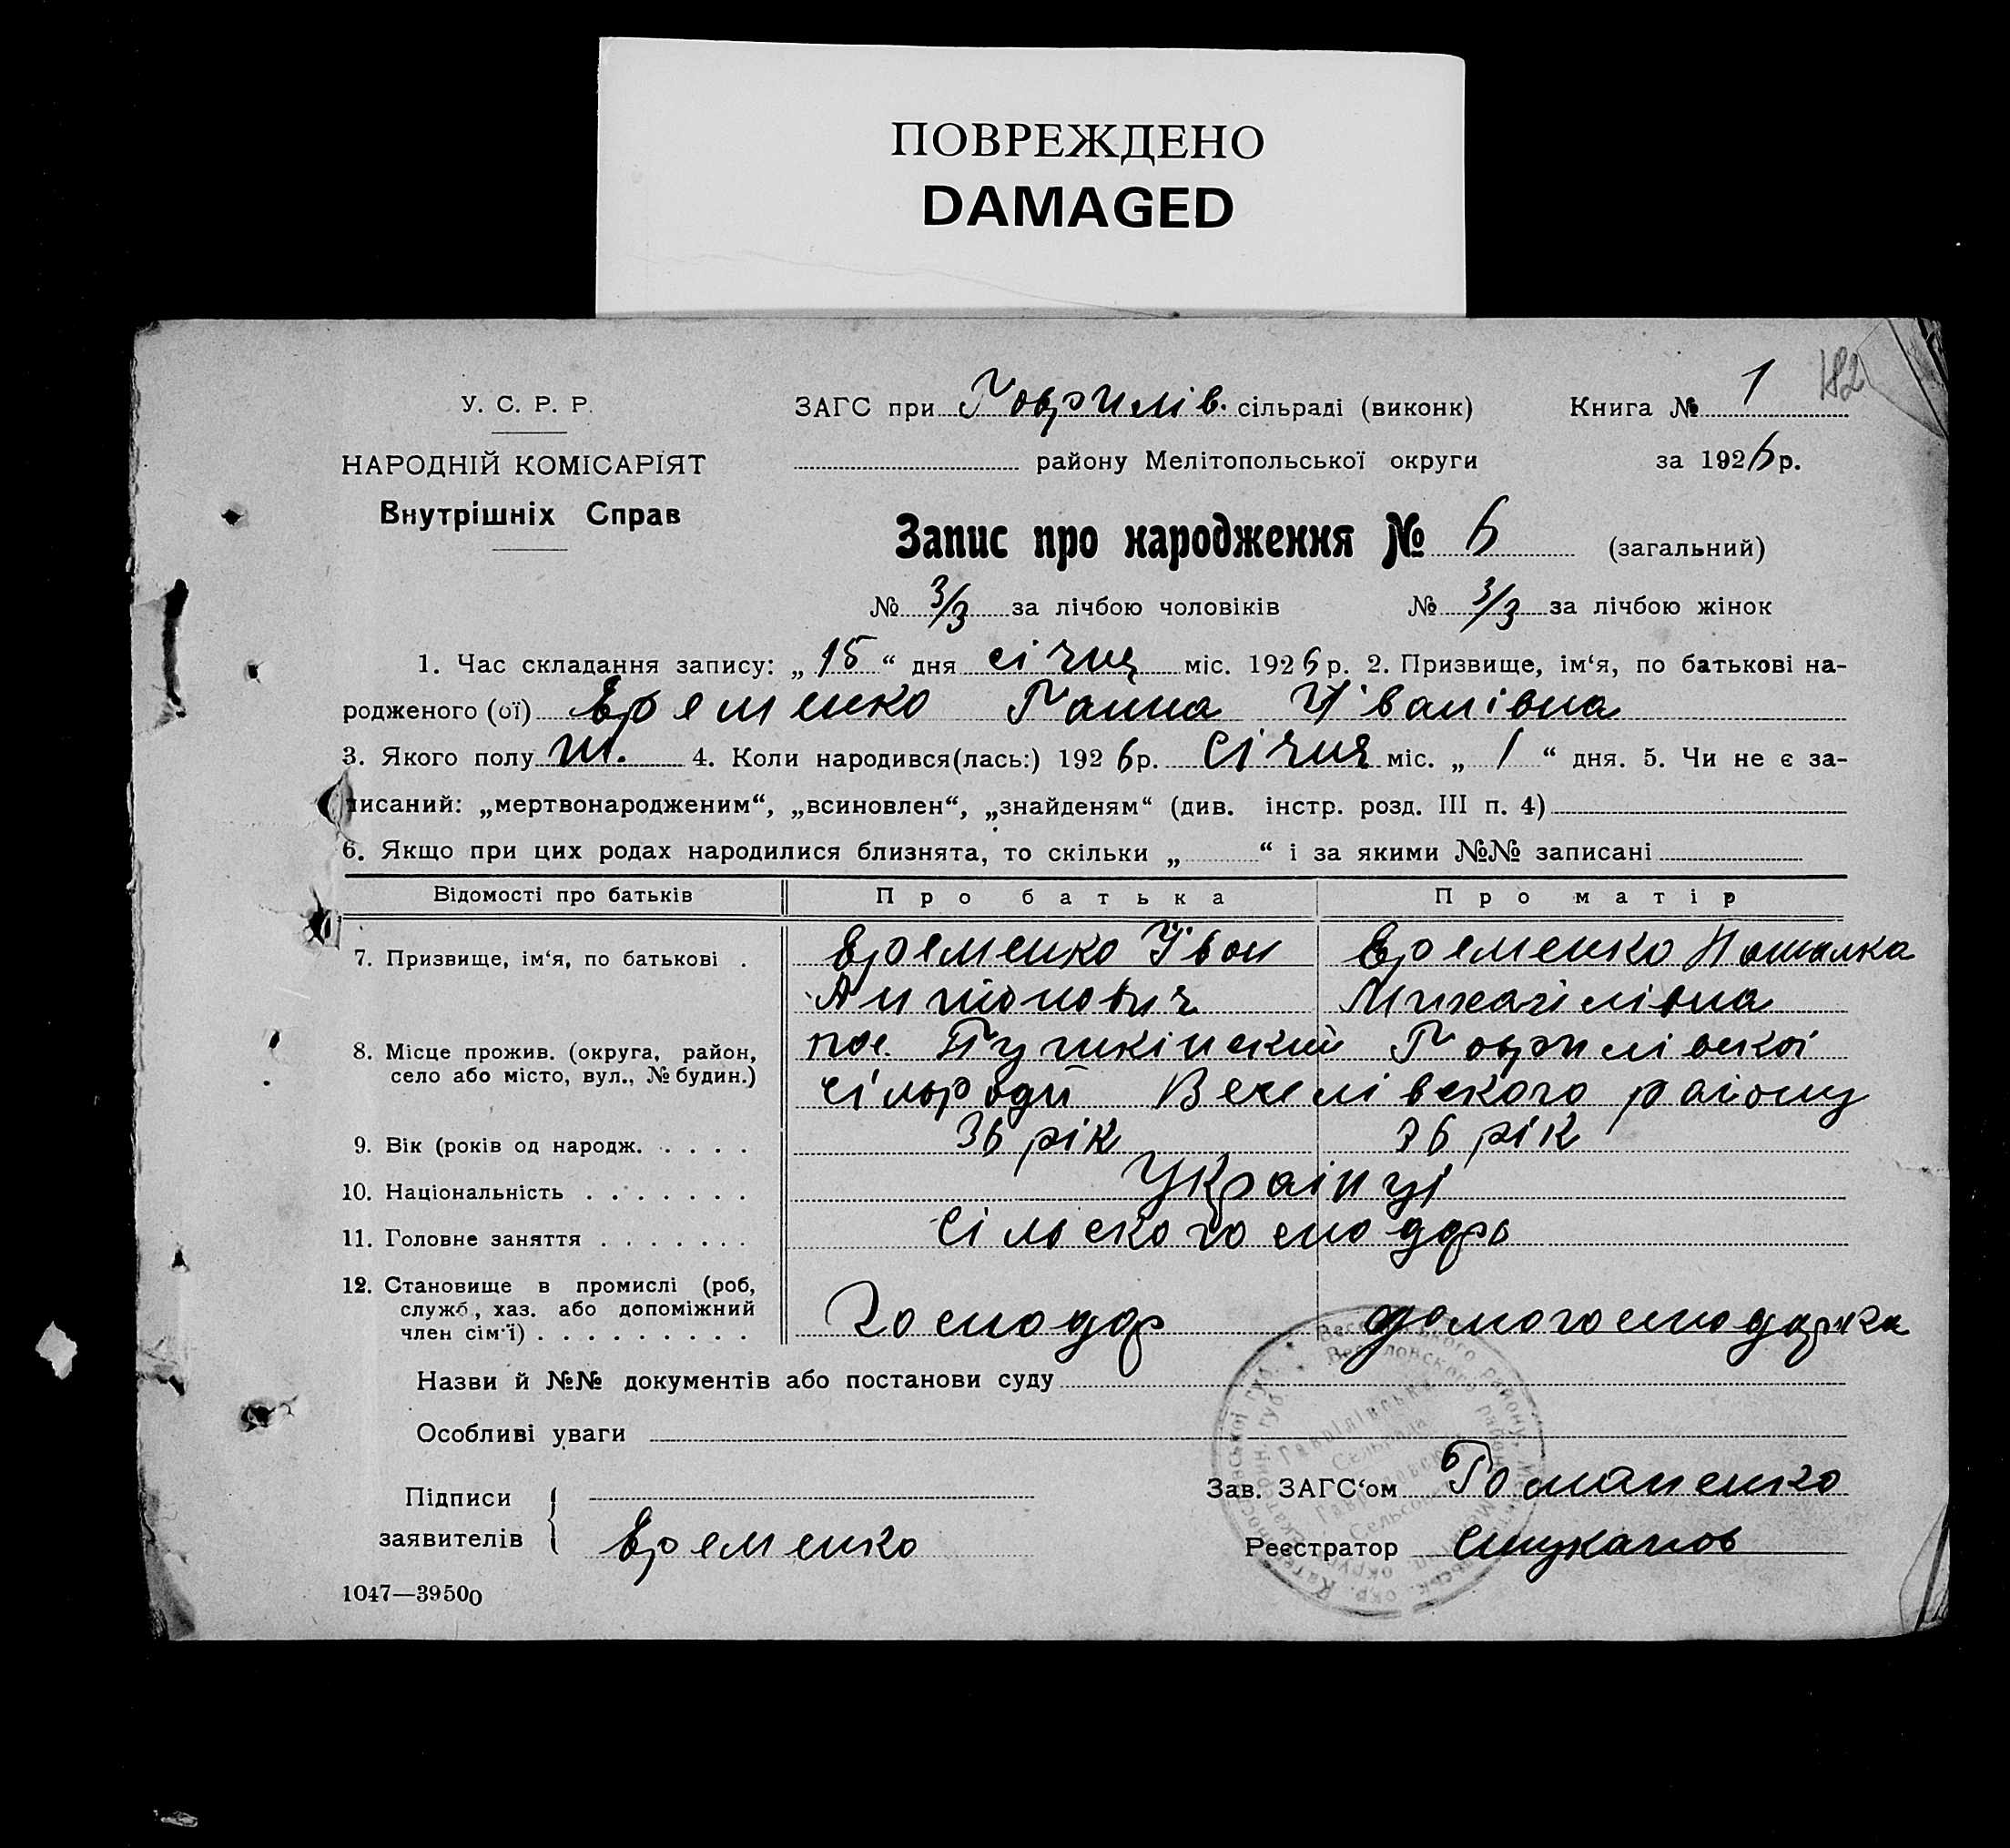 ПОВРЕЖДЕНО
DAMAGED
182
У. С. Р. Р.
ЗАГС при Гаврилів. сільраді (виконк)
Книга № 1
НАРОДНІЙ КОМІСАРІЯТ
району Мелітопольської округи
за 1926 р.
Внутрішніх Справ
Запис про народження № 6 (загальний)
№ 3/3 за лічбою чоловіків № 3/3 за лічбою жінок
1. Час складання запису: „ 15 “ дня січня міс. 1926 р. 2. Призвище, ім‘я, по батькові на-
родженого (ої) Єременко Ганна Іванівна
3. Якого полу ж. 4. Коли народився(лась:) 1926 р. Січня міс. „ 1 “ дня. 5. Чи не є за-
писаний: „мертвонародженим“, „всиновлен“, „знайденям“ (див. інстр. розд. III п. 4)
6. Якщо при цих родах народилися близнята, то скільки „ “ і за якими №№ записані
Відомості про батьків Про батька Про матір
7. Призвище, ім‘я, по батькові . Єременко Іван Єременко Наталка
Антонович Михайлівна
8. Місце прожив. (округа, район, пос. Пушкінский Гаврилівскоі
село або місто, вул., № будин.) сільради Веселівского району
9. Вік (років од народж. . . . . 36 рік 36 рік
10. Національність . . . . . . . Украінці
11. Головне заняття . . . . . . . Сільскогосподарь
12. Становище в промислі (роб,
служб, хаз. або допоміжний
член сім‘ї) . . . . . . . . . Господар домогосподарка
Назви й №№ документів або постанови суду
Особливі уваги
Підписи
заявителів Єременко
Зав. ЗАГС‘ом Романенко
Реєстратор Стуканов
1047—39500